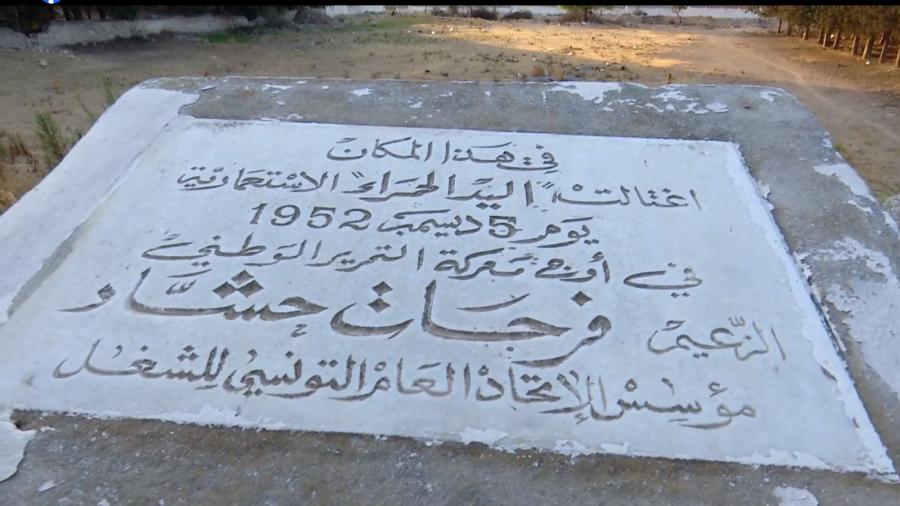 في هذا المكان
اغتالت "اليد الحمراء" الاستعمارية
يوم 5 ديسمبر 1952
في أوج معركة التحرير الوطني
الزعيم فرحات حشاد
مؤسس الاتحاد العام التونسي للشغل